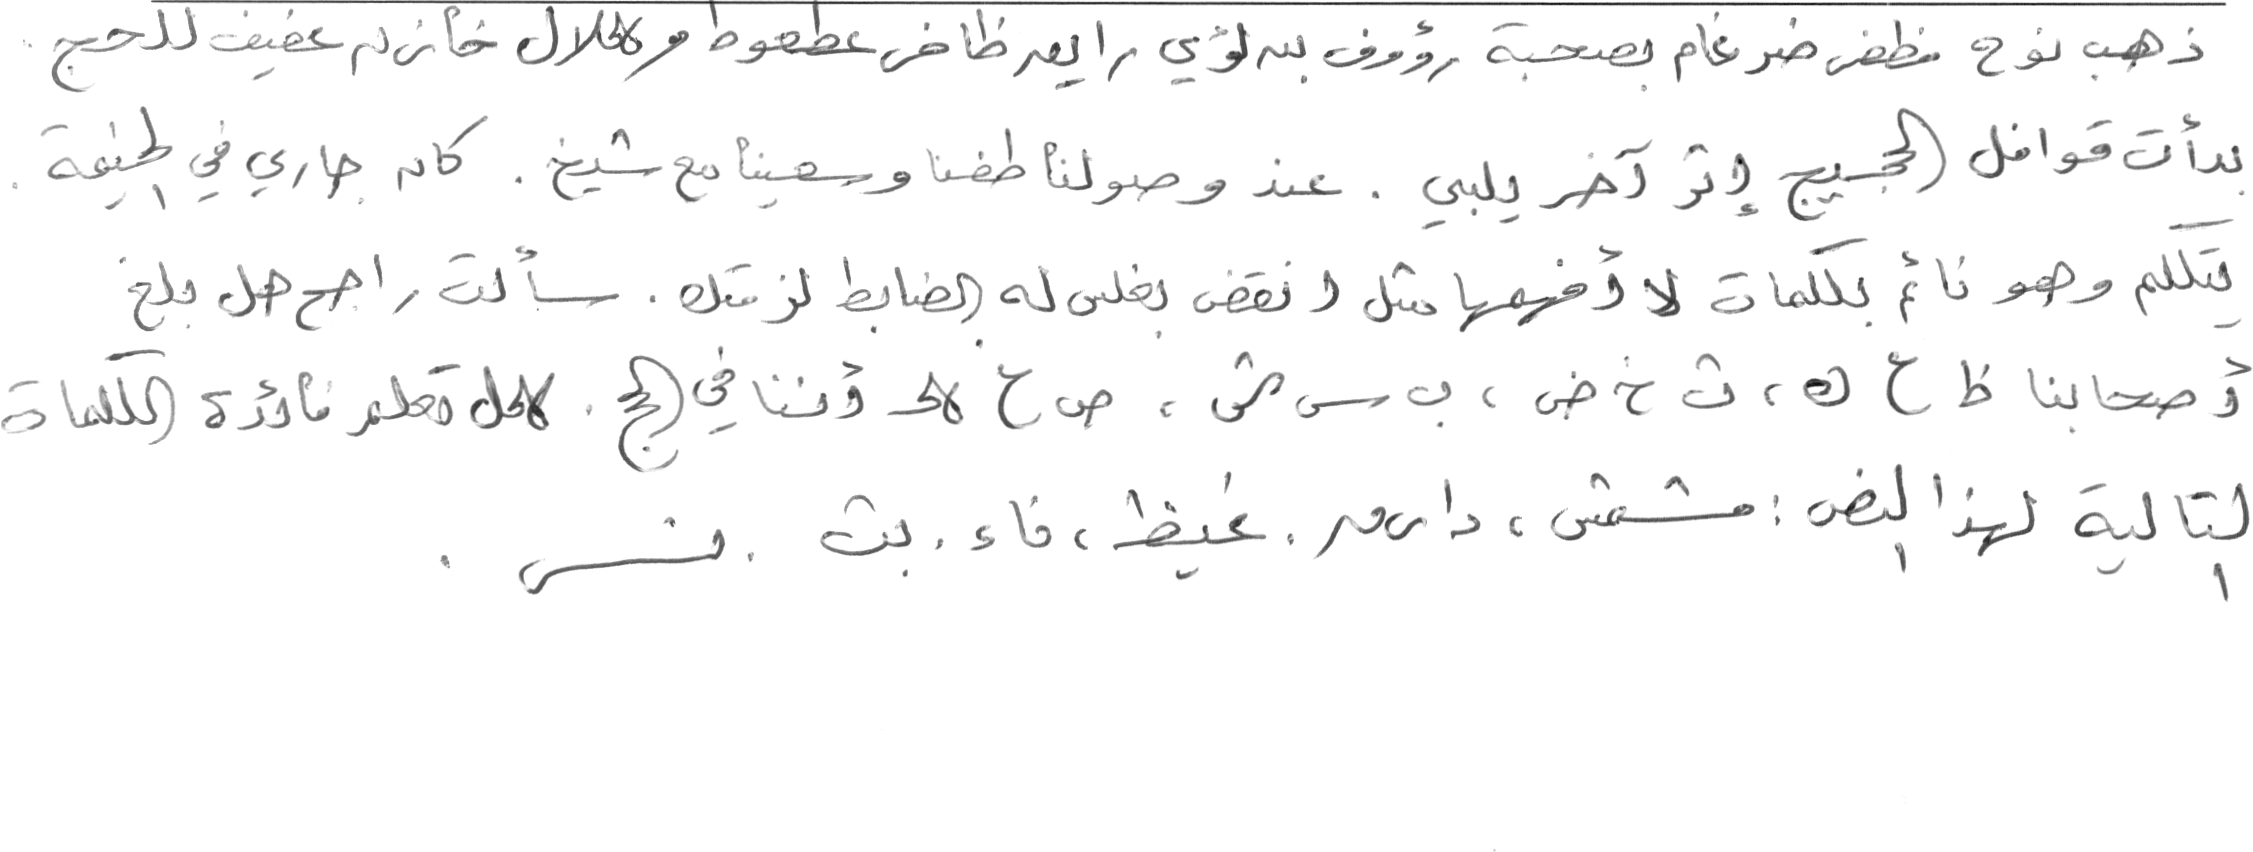 ذهب نوح مظفر ضرغام بصحبة رؤوف بن لؤي رايص ظافر عطعوط و هلال خأزن عفيف للحج .
بدأت قوافل الحجيج إثر آخر يلبي . عند وصولنا طفنا وسعينا مع شيخ . كان جاري في الخيمة .
يتكلم وهو نائم بكلمات لا أفهمها مثل انقض بغلس له الضابط لز متك . سألت راجح هل بلغ
أصحابنا ظ ع ك ، ث خ ض ، ب س ش ، ص ع هـ أننا في الحج . هل تعلم فائدة الكلمات
التالية لهذا النص : مشمش ، دارم . غيظ ، فاء . بث . نس .